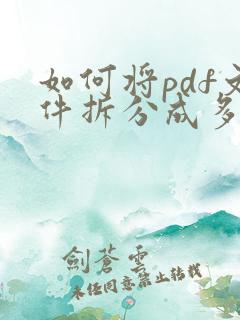 如何将pdf文
件拆分成多
劍蒼雲
未经同意禁止转载